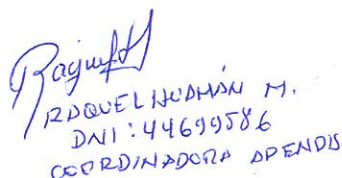 Raquel H
RAQUEL HUAMÁN M.
DNI: 44699586
COORDINADORA APENDIS